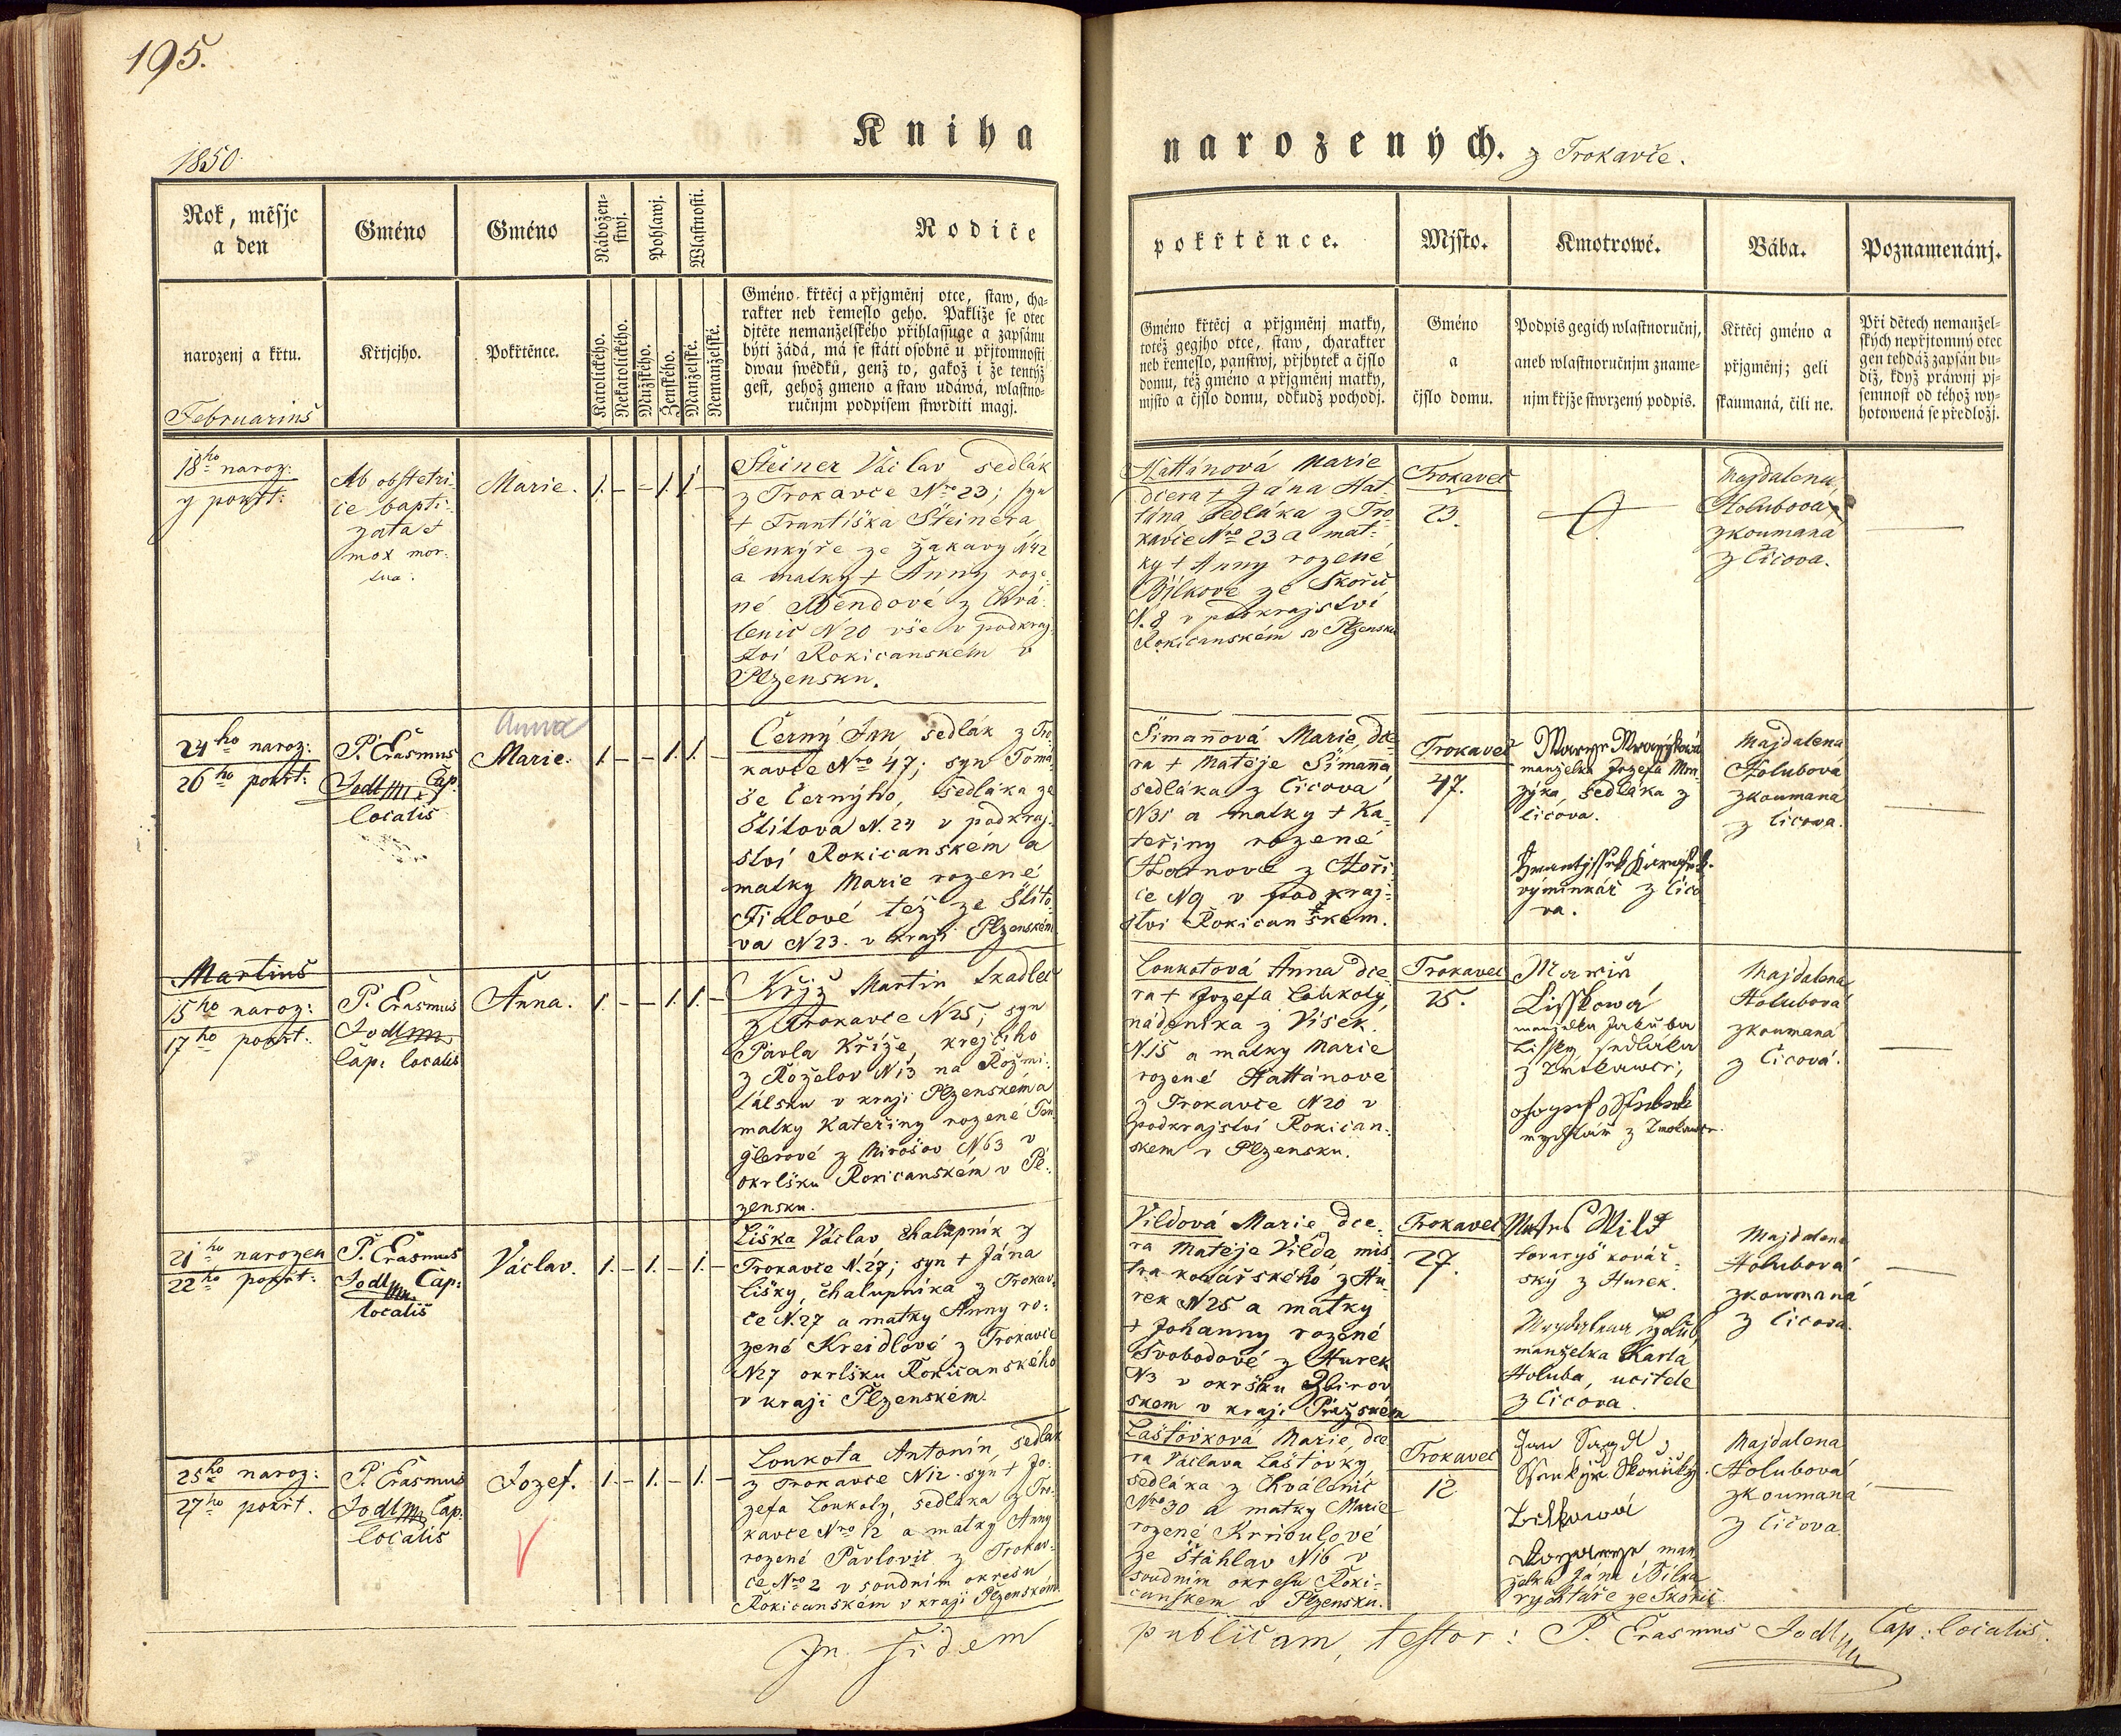 195.
Kniha
narozených. z Trokavče.
1850.
Rok, měsjc
a den
narozenj a křtu.
Februariuš
Gméno
Křtjcjho.
Gméno
Pokřtěnce.
Nábožen-
stwj.
Katolického.
Nekatolického.
Pohlawj.
Mužského.
Ženského.
Wlastnosti.
Manželské.
Nemanželské.
Rodiče
Gméno křtěcj a přjgměnj otce, staw, cha-
rakter neb řemeslo geho. Pakliže se otec
djtěte nemanželského přihlassuge a zapsánu
býti žádá, má se státi osobně u přjtomnosti
dwau swědků, genž to, gakož i že tentýž
gest, gehož gmeno a staw udáwá, wlastno-
ručnjm podpisem stwrditi magj.
pokřtěnce.
Gméno křtěcj a přjgměnj matky,
totéž gegjho otce, staw, charakter
neb řemeslo, panstwj, přjbytek a čjslo
domu, též gméno a přjgměnj matky,
mjsto a čjslo domu, odkudž pocházj.
Mjsto.
Gméno
a
čjslo domu.
Kmotrowé.
Podpis gegich wlastnoručnj,
aneb wlastnoručnjm zname-
njm křjže stwrzený podpis.
Bába.
Křtěcj gméno a
přjgměnj; geli
skaumaná, čili ne.
Poznamenánj.
Při dětech nemanžel-
ských nepřjtomný otec
gen tehdáž zapsán bu-
diž, když práwnj pj-
semnost od téhož wy-
hotowená se předložj.
18ho naroz:
y pokřt:
Ab obstetri-
ce bapti-
zata et
mox mor-
tua.
Marie. 1. – – 1. 1. –
Šteiner Václav sedlák
z Trokavče Nro 23; syn
+ Františka Šteinera,
šenkýře ze Žakavy N42
a matky + Anny roze-
né Bendové z Chvá-
lenic N20 vše v podkraj-
ství Rokicanském v
Plzensku.
Hattánová Marie
dcera + Jána Hat-
tána, sedláka z Tro
kavče Nro 23 a mat-
ky + Anny rozené
Bílkove ze Skořic
N. 8 v podkrajství
Rokicanském v Plzensku
Trokavec
23.
Majdalena
Holubová,
zkoumaná
z Čičova.
24ho naroz:
26ho pokřt:
P. Erasmus
Jodl Cap.
locališ
Anna
Marie. 1. – – 1. 1. –
Černý Jan sedlák z Tro
kavče Nro 47; syn Tomá-
še Černýho, sedláka ze
Štítova N. 24 v podkraj-
ství Rokicanském a
matky Marie rozené
Fialové též ze Štíto-
va N23. v kraji Plzenském
Šimannová Marie, dce-
ra + Matěje Šimanna
sedláka z Čičova
N31 a matky + Ka-
teřiny rozené
z Hoři-
ce N9 v podkraj-
stvi Rokicanském.
Trokavec
47.
manželka Jozefa Mra-
zýka, sedláka z
Čičova.
výminkář z Čičo
va.
Majdalena
Holubová
zkoumaná
z Čičova.
Martiuš
15ho naroz:
17ho pokřt:
P. Erasmus
Jodl
Cap: locališ
Anna. 1. – – 1. 1. –
Křjž Martin tkadlec
z Trokavče N25; syn
Pavla Kříže, krejčího
z Roželov N13 na Rožmi-
tálsku v kraji Plzenském a
matky Kateřiny rozené Ten
glerové z Mirošov N63 v
okršku Rokicanském v Pl-
zensku.
Loukotová Anna dce-
ra + Jozefa Loukoty,
nádeníka z Vísek
N.15 a matky Marie
rozené Hattánové
z Trokavče N20 v
podkrajství Rokican-
skem v Plzensku.
Trokavec
25.
Marie
Lisskowá
manželka Jakuba
Lissky sedláka
z Trokawce,
Majdalena
Holubová
zkoumaná
z Čičová.
21ho narozen
22ho pokřt:
P. Erasmus
Jodl Cap:
locališ
Václav. 1. – 1. – 1. –
Liška Václav chalupník z
Trokavče N.27; syn + Jána
Lišky, chalupníka z Trokav-
če N.27 a matky Anny ro-
zené Kreidlové z Trokavče
N27 okršku Rokicanského
v kraji Plzenském.
Vildová Marie, dce-
ra Matěje Vilda mis
tra kovářského z Hu
rek N25 a matky
+ Johanny rozené
Svobodové z Hurek
N3 v okršku Zbirov
skem v kraji Pražském
Trokavec
27.
Mates Wild
tovaryš kovář-
ský z Hurek.
Magdalena Holub
manželka Karla
Holuba, učitele
z Čičova.
Majdalena
Holubová
zkoumaná
z Čičova.
25ho naroz:
27ho pokřt.
P. Erasmus
Jodl Cap:
locališ
Jozef. 1. – 1. – 1. –
Loukota Antonín, sedlák
z Trokavče N12. syn + Jo-
zefa Loukoty, sedláka z Tro-
kavče Nro 12 a matky Anny
rozené Pavlovic z Trokav-
če Nro 2 v soudním okresu
Rokicanském v kraji Plzenském
Laštovková Marie, dce
ra Václava Laštovky,
sedláka z Chválenic
Nro 30 a matky Marie
rozené Křivoulové
ze Štáhlav N16 v
soudním okresu Roki-
canskem v Plzensku.
Trokavec
12
manželka Jána Bílka
rychtáře ze Skořic
Majdalena
Holubová
zkoumaná
z Čičova.
In fidem
publicam, testor: P. Erasmus Jodl Cap: locališ.